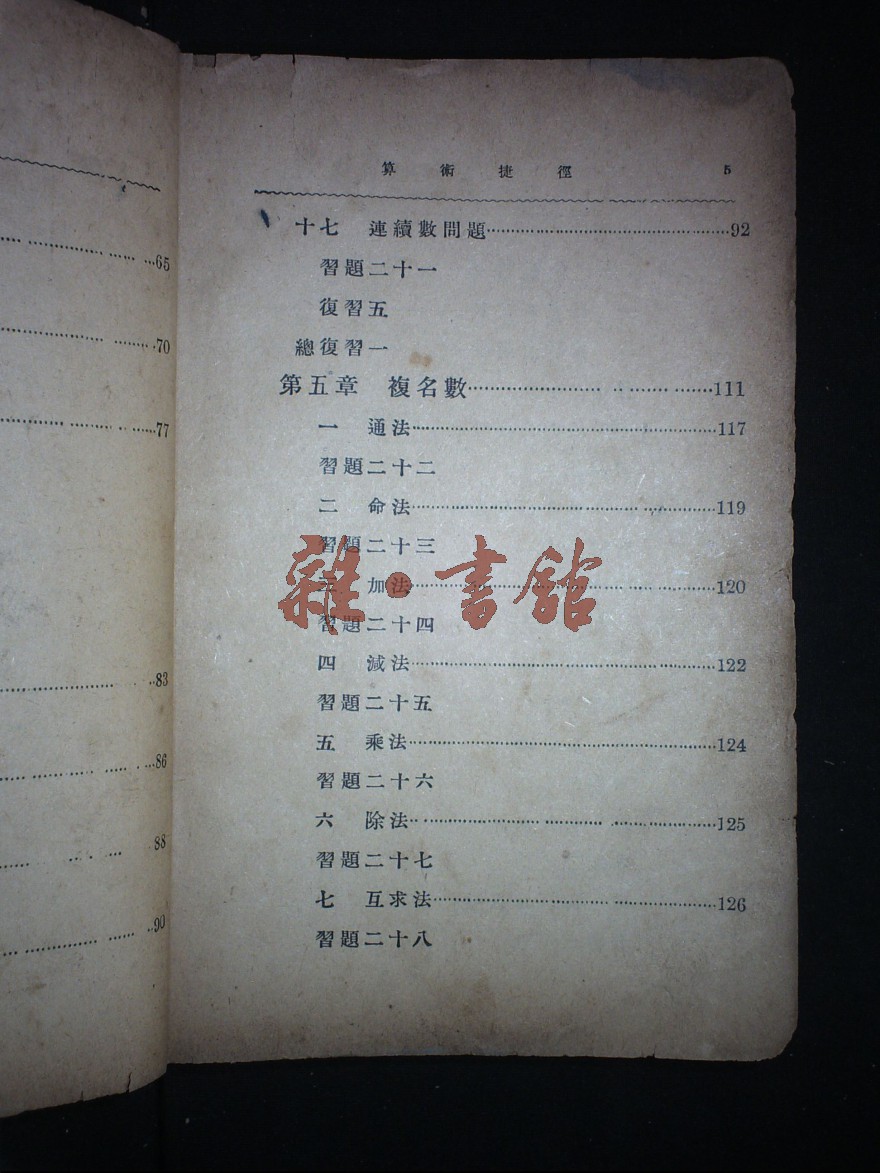 65
70
77
83
86
88
90
算術捷徑 5
十七 連續數問題 92
習題二十一
復習五
總復習一
第五章 複名數 111
一 通法 117
習題二十二
二 命法 119
習題二十三
三 加法 120
習題二十四
四 減法 122
習題二十五
五 乘法 124
習題二十六
六 除法 125
習題二十七
七 互求法 126
習題二十八
雜·書館